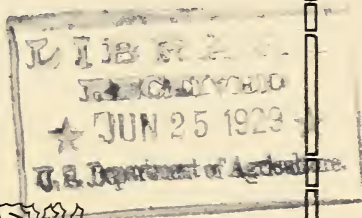 LIBRARY
RECEIVED
★ JUN 25 1929 ★
U. S. Department of Agriculture.